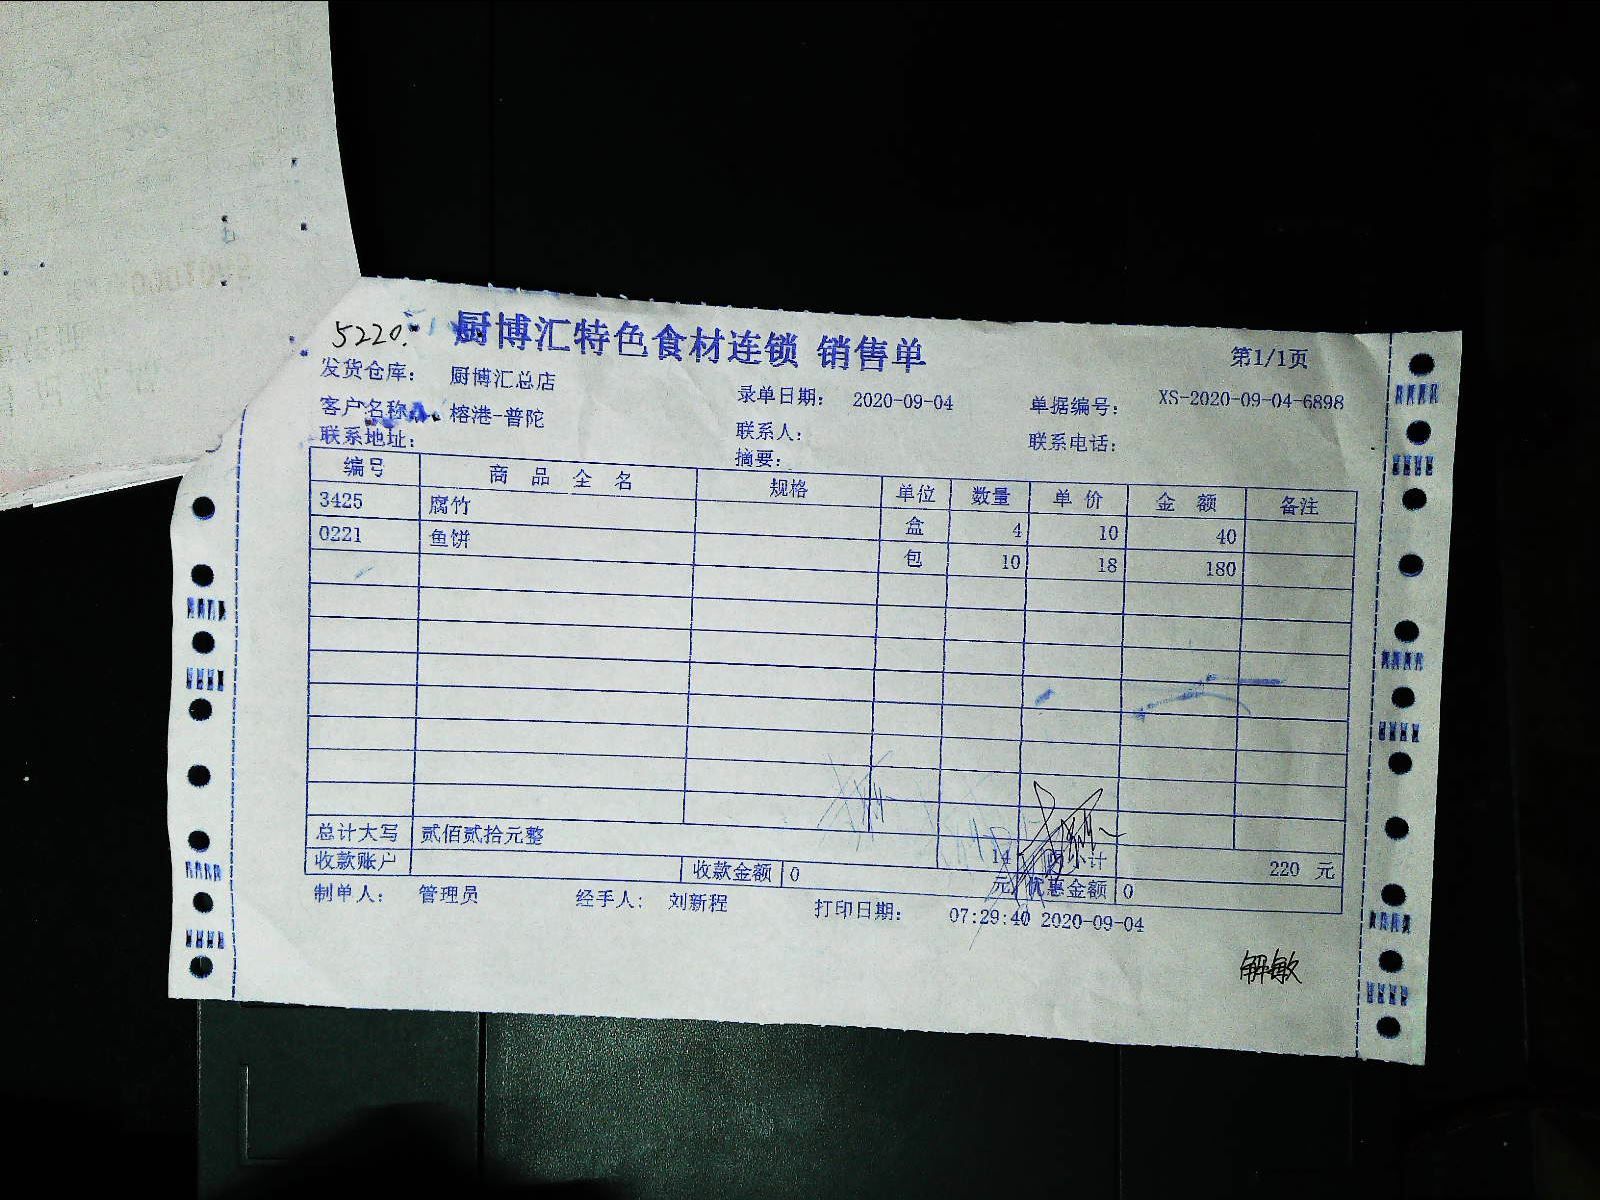 5220.
厨博汇特色食材连锁 销售单
第1/1页
发货仓库： 厨博汇总店
录单日期： 2020-09-04 单据编号： XS-2020-09-04-6898
客户名称 榕港-普陀 联系人： 联系电话：
联系地址： 摘要：
编号 商 品 全 名 规格 单位 数量 单 价 金 额 备注
3425 腐竹 盒 4 10 40
0221 鱼饼 包 10 18 180
总计大写 贰佰贰拾元整 14 小计 220 元
收款账户 收款金额 0 元 优惠金额 0
制单人： 管理员 经手人： 刘新程 打印日期： 07:29:40 2020-09-04
解敏